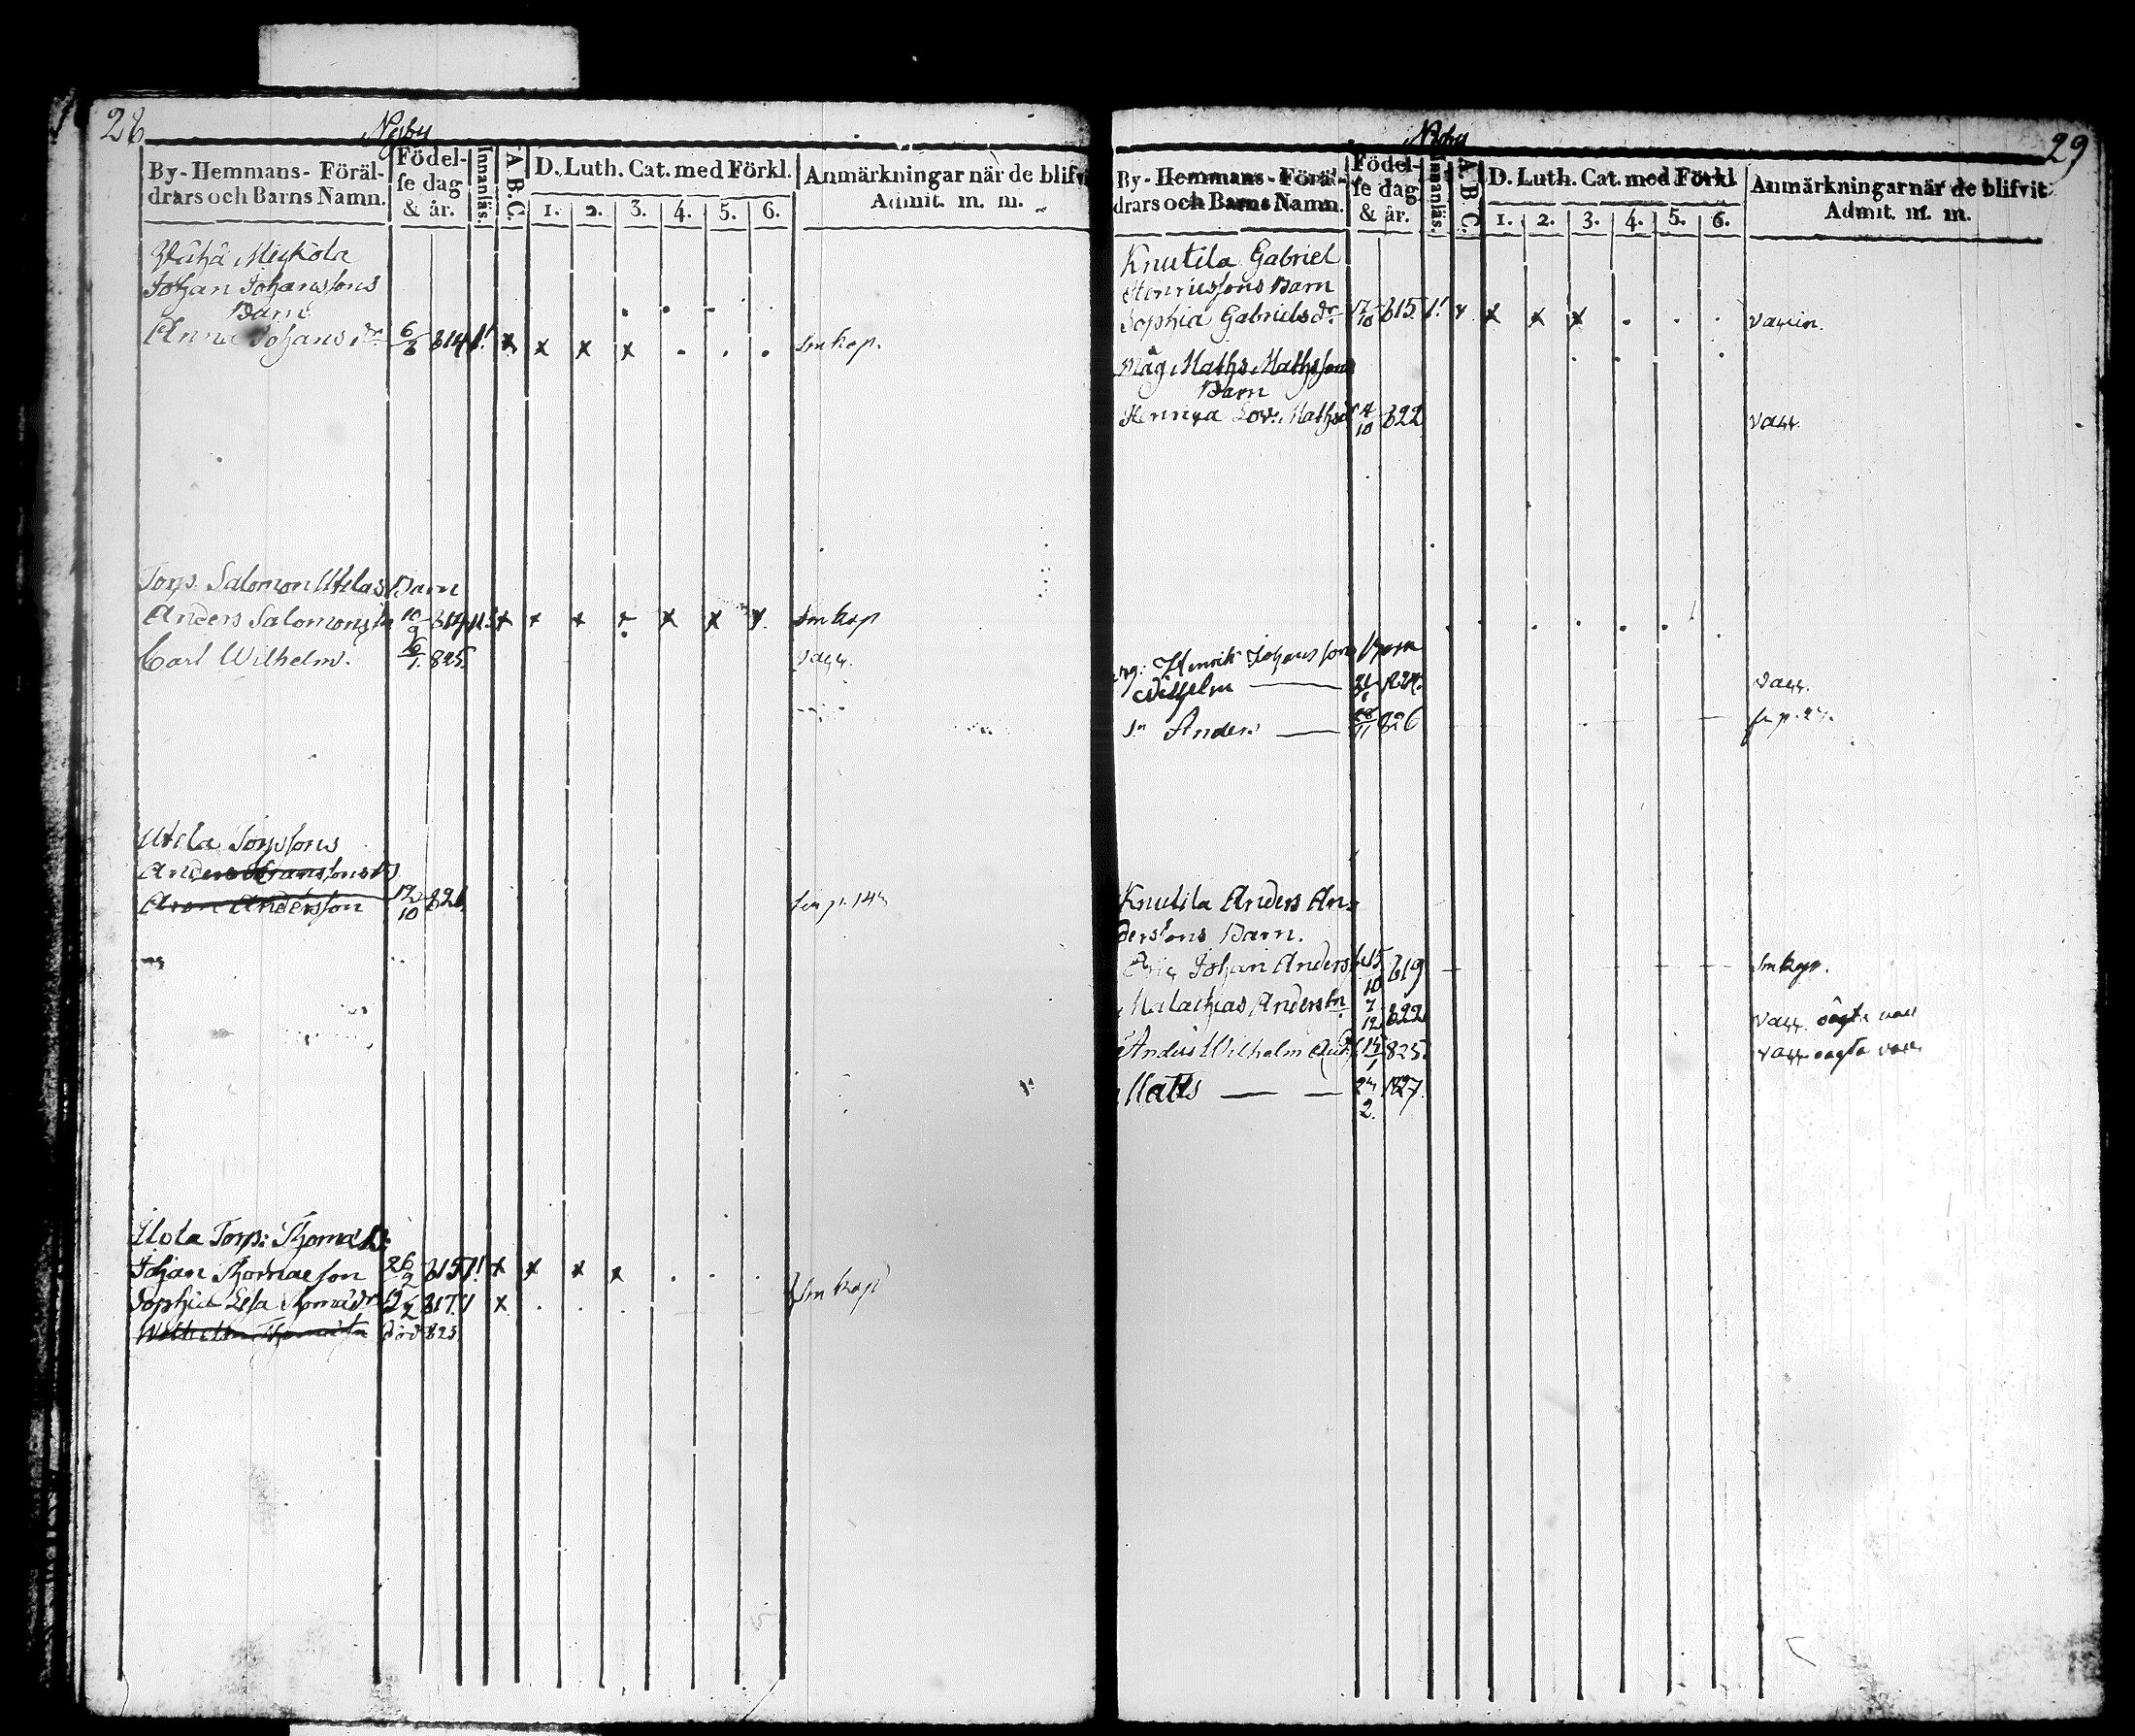 28
Nyby
By- Hemmans- Föräl-
drars och Barns Namn.
Födel-
se dag
& år.
Innanläs.
A. B. C.
D. Luth. Cat. med Förkl.
1. 2. 3. 4. 5. 6.
Anmärkningar när de blifvi
Admit. m. m.
Wähä Myköla
Johan Johanssons
Barn
Anna Johansdr 6/8 814 1! x x x x . . . Smkop.
Torp. Salomon Utilas Barn
Anders Salomonss. 10/9 814 x x x x x x x Smkop
Carl Wilhelm. 16/1. 825. vacc.
Utila Torpsons
Anders
Aron Andersson 12/10 821
Ilola Torp: Thomas B:
Johan Thomasson 26/2 815 1! x x x x . . .
Sophia Lisa Thomædr 817. x . . . Smkop
död 823
29
Nyby
By- Hemmans- Föräl-
drars och Barns Namn.
Födel-
se dag
& år.
Innanläs.
A. B. C.
D. Luth. Cat. med Förkl
1. 2. 3. 4. 5. 6.
Anmärkningar när de blifvit
Admit. m. m.
Knutila Gabriel
Henricssons Barn
Sophia Gabrielsdr. 12/10 815 1! x x x x . . . vaccin.
Måg Maths Mathssons
Barn
Henrica Lov. Mathsd 4/10 822 vacc.
Henrik Johansson Barn
Wilhelm — 1824. vacc.
Anders — 28/11 826
Knutila Anders An-
derssons Barn.
Eric Johan Anders 15/10 819 Smkop.
Malachias Anderssn 7/12 822 vacc. oägta
Anders Wilhelm 14/1 825. vacc. oägta
Matts — — 1827.